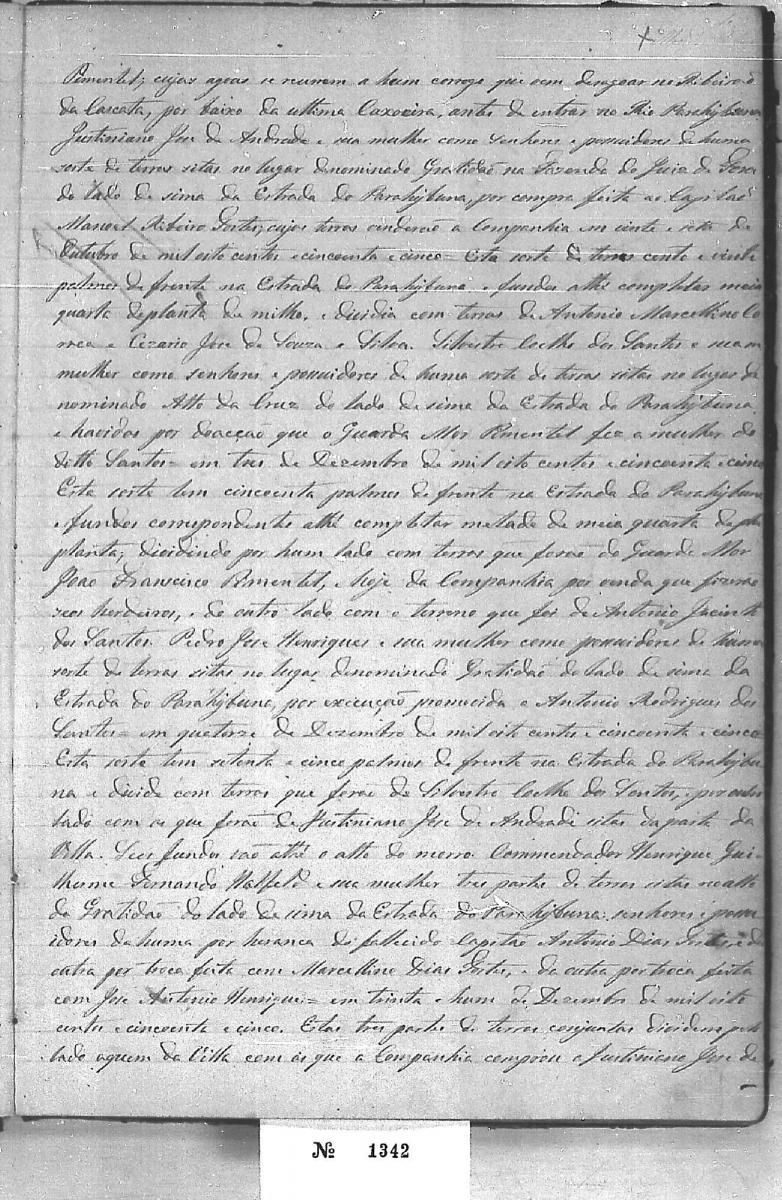 Pimentel; cujas agoas se reunem a hum corrego que vem desagoar no Ribeirão
da Cascata, por baixo da ultima Caxoeira, antes de entrar no Rio Parahybuna
Justiniano Jose de Andrade e sua mulher como senhores e possuidores de huma
sorte de terras sitas no lugar denominado Gratidão na Fazenda do Juiz de Fora
do lado de sima da Estrada do Parahybuna, por compra feita ao Capitão
Manoel Ribeiro ; cujas terras venderão a Companhia em vinte e sete de
Outubro de mil oito centos e cincoenta e cinco = Esta sorte de terras cento e vinte
palmos de frente na Estrada do Parahybuna e fundos athé completar meia
quarta de planta de milho, e dividia com terras de Antonio Marcellino Co
rrea e Cezario Jose de Souza e Silva. Silvestre Coelho dos Santos e sua
mulher como senhores e possuidores de huma sorte de terras sitas no lugar de
nominado Alto da Cruz do lado de sima da Estrada do Parahybuna
e havidos por doacção que o Guarda Mor Pimentel fez a mulher do
ditto Santos = em tres de Dezembro de mil oito centos e cincoenta e cinco
Esta sorte tem cincoenta palmos de frente na Estrada do Parahybuna
e fundos correspondentes athé completar metade de meia quarta de
planta; dividindo por hum lado com terras que forão do Guarda Mor
João Franscisco Pimentel, Hoje da Companhia por venda que fizerão
seos herdeiros, e do outro lado com o terreno que foi de Antonio Jacinto
dos Santos. Pedro Jose Henriques e sua mulher como possuidores de huma
sorte de terras sitas no lugar denominado Gratidão do lado de sima da
Estrada do Parahybuna, por execução promovida a Antonio Rodrigues dos
Santos = em quatorze de Dezembro de mil oito centos e cincoenta e cinco
Esta sorte tem setenta e cinco palmos de frente na Estrada do Parahybu
na e divide com terras que forão de Silvestre Coelho dos Santos, por outro
lado com as que forão de Justiniano Jose de Andrade sitas da parte da
Villa. Seos fundos são athé o alto do morro. Commendador Henrique Gui-
lherme Fernando Halfeld e sua mulher tres partes de terras sitas no alto
da Gratidão do lado de sima da Estrada do Parahybuna: senhores e possu
idores de huma por heranca do fallecido Capitão Antonio Dias , e de
outra por troca feita com Marcellino Dias , e da outra por troca feita
com Jose Antonio Henriques = em trinta e hum de Dezembro de mil oito
centos e cincoenta e cinco. Estas tres partes de terras conjuntas dividem pelo
lado aquem da Villa com as que a Companhia comprou a Justiniano Jose de
Nº 1342